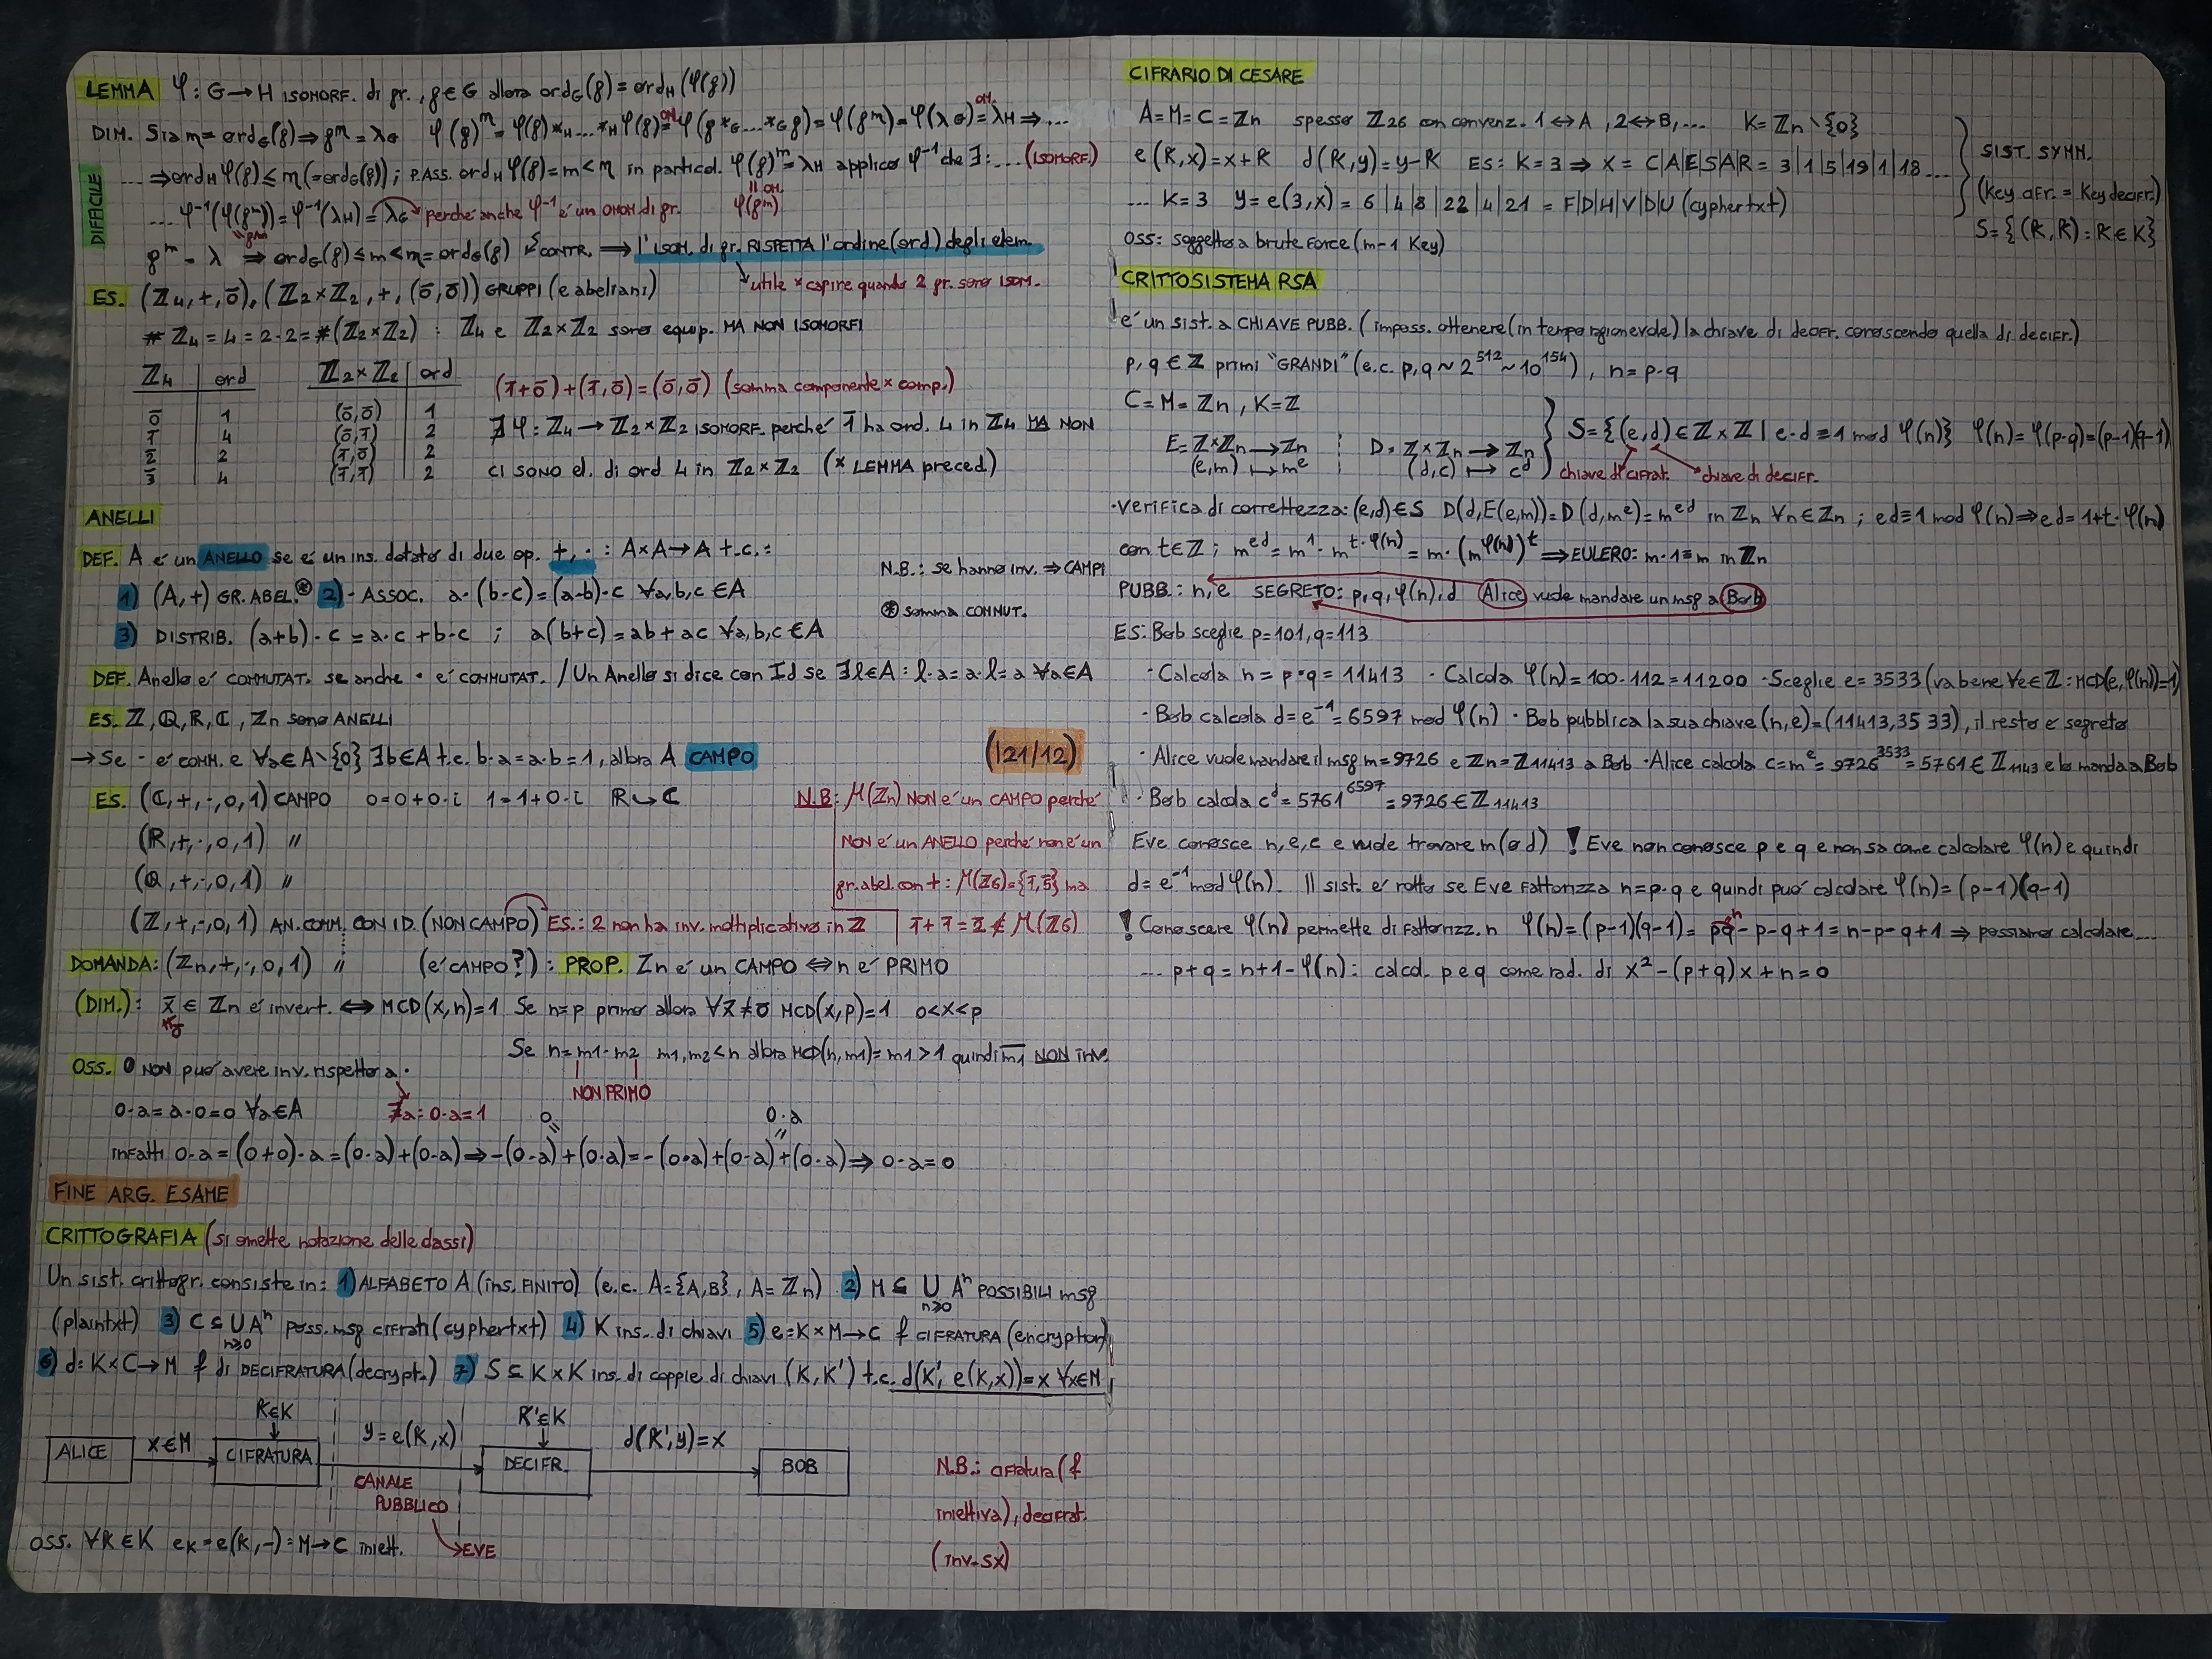 LEMMA φ: G→H ISOMORF. di gr., g∈G allora ord_G(g)=ord_H(φ(g))
DIM. Sia m=ord_G(g)⇒g^m=λ_G φ(g)^m=φ(g)*_H...*_Hφ(g)=φ(g*_G...*_G g)=φ(g^m)=φ(λ_G)=λ_H⇒...
OM. OM.
DIFFICILE
...⇒ord_H φ(g)≤m(=ord_G(g)); P.ASS. ord_H φ(g)=m<m in particol. φ(g)^m=λ_H applico φ^-1 che ∃:... (ISOMORF.)
|| OM.
φ(g^m)
... φ^-1(φ(g^m))=φ^-1(λ_H)=λ_G perché anche φ^-1 è un OMOM di gr.
g^m=λ ⇒ord_G(g)≤m<m=ord_G(g) CONTR. ⇒ l'ISOM. di gr. RISPETTA l'ordine(ord) degli elem.
utile × capire quando 2 gr. sono ISOM.
ES. (Z4,+,0̄),(Z2×Z2,+,(0̄,0̄)) GRUPPI (e abeliani)
# Z4=4=2·2=#(Z2×Z2) : Z4 e Z2×Z2 sono equip. MA NON ISOMORFI
Z4 | ord Z2×Z2 | ord
0̄ | 1 (0̄,0̄) | 1
1̄ | 4 (0̄,1̄) | 2
2̄ | 2 (1̄,0̄) | 2
3̄ | 4 (1̄,1̄) | 2
(1̄+0̄)+(1̄,0̄)=(0̄,0̄) (somma componente × comp.)
∄φ: Z4→Z2×Z2 ISOMORF. perché 1̄ ha ord. 4 in Z4 MA NON
CI SONO el. di ord 4 in Z2×Z2 (× LEMMA preced)
ANELLI
DEF. A è un ANELLO se è un ins. dotato di due op. +,· : A×A→A t.c.:
N.B.: se hanno inv. ⇒ CAMPI
1) (A,+) GR. ABEL.⊛ 2) · ASSOC. a·(b·c)=(a·b)·c ∀a,b,c∈A
⊛ somma COMMUT.
3) DISTRIB. (a+b)·c=a·c+b·c ; a(b+c)=ab+ac ∀a,b,c∈A
DEF. Anello è COMMUTAT. se anche · è COMMUTAT. / Un Anello si dice con Id se ∃l∈A: l·a=a·l=a ∀a∈A
ES. Z,Q,R,C,Zn sono ANELLI
→Se · è COMM. e ∀a∈A\{0} ∃b∈A t.c. b·a=a·b=1, allora A CAMPO
(121/12)
ES. (C,+,·,0,1) CAMPO 0=0+0·i 1=1+0·i R↪C
(R,+,·,0,1) "
(Q,+,·,0,1) "
(Z,+,·,0,1) AN. COMM. CON ID. (NON CAMPO) ES.: 2 non ha inv. moltiplicativo in Z
N.B: μ(Zn) NON è un CAMPO perché
NON è un ANELLO perché non è un
gr. abel. con +: μ(Z6)={1̄,5̄} ma
1̄+1̄=2̄∉μ(Z6)
DOMANDA: (Zn,+,·,0,1) " (è CAMPO?): PROP. Zn è un CAMPO ⇔ n è PRIMO
(DIM.): x̄∈Zn è invert. ⇔ MCD(x,n)=1 Se n=p primo allora ∀x̄≠0̄ MCD(x,p)=1 0<x<p
Se n=m1·m2 m1,m2<n allora MCD(n,m1)=m1>1 quindi m̄1 NON inv.
NON PRIMO
OSS. 0 NON può avere inv. rispetto a ·
0·a=a·0=0 ∀a∈A ∄a: 0·a=1
0 0·a
infatti 0·a=(0+0)·a=(0·a)+(0·a)⇒-(0·a)+(0·a)=-(0·a)+(0·a)+(0·a)⇒0·a=0
FINE ARG. ESAME
CRITTOGRAFIA (si omette notazione delle classi)
Un sist. crittogr. consiste in: 1) ALFABETO A (ins. FINITO) (e.c. A={A,B}, A=Zn) 2) M⊆ ∪_{n≥0} A^n POSSIBILI msg
(plaintxt) 3) C⊆ ∪_{n≥0} A^n poss. msg cifrati (cyphertxt) 4) K ins. di chiavi 5) e=K×M→C f CIFRATURA (encryption)
6) d: K×C→M f di DECIFRATURA (decrypt.) 7) S⊆K×K ins. di coppie di chiavi (K,K') t.c. d(K',e(K,x))=x ∀x∈M
K∈K K'∈K
ALICE x∈M CIFRATURA y=e(K,x) DECIFR. d(K',y)=x BOB
CANALE PUBBLICO
EVE
N.B.: cifratura (f
iniettiva), decifrat.
(inv. sx)
OSS. ∀K∈K e_K=e(K,-):M→C iniett.
CIFRARIO DI CESARE
A=M=C=Zn spesso Z26 con convenz. 1↔A, 2↔B,... K=Zn\{0}
e(K,x)=x+K d(K,y)=y-K ES: K=3 ⇒ X= C|A|E|S|A|R = 3|1|5|19|1|18...
... K=3 y=e(3,x)= 6|4|8|22|4|21 = F|D|H|V|D|U (cyphertxt)
SIST. SYMM.
(Key cifr. = Key decifr.)
S={(K,K): K∈K}
OSS: soggetto a brute force (m-1 Key)
CRITTOSISTEMA RSA
è un sist. a CHIAVE PUBB. (imposs. ottenere (in tempo ragionevole) la chiave di decifr. conoscendo quella di decifr.)
p,q∈Z primi "GRANDI" (e.c. p,q~2^512~10^154), n=p·q
C=M=Zn, K=Z
E=Z×Zn→Zn D=Z×Zn→Zn S={(e,d)∈Z×Z | e·d≡1 mod φ(n)} φ(n)=φ(p·q)=(p-1)(q-1)
(e,m)↦m^e (d,c)↦c^d chiave di cifrat. chiave di decifr.
·Verifica di correttezza: (e,d)∈S D(d,E(e,m))=D(d,m^e)=m^ed in Zn ∀n∈Zn ; ed≡1 mod φ(n)⇒ed=1+t·φ(n)
con t∈Z ; m^ed=m^1·m^{t·φ(n)}=m·(m^φ(n))^t ⇒EULERO: m·1≡m in Zn
PUBB.: n,e SEGRETO: p,q,φ(n),d Alice vuole mandare un msg a Bob
ES: Bob sceglie p=101, q=113
·Calcola n=p·q=11413 ·Calcola φ(n)=100·112=11200 ·Sceglie e=3533 (va bene ∀e∈Z: MCD(e,φ(n))=1)
·Bob calcola d=e^-1=6597 mod φ(n) ·Bob pubblica la sua chiave (n,e)=(11413,3533), il resto è segreto
·Alice vuole mandare il msg m=9726 ∈ Zn=Z11413 a Bob ·Alice calcola c=m^e=9726^3533=5761∈Z1143 e lo manda a Bob
·Bob calcola c^d=5761^6597=9726∈Z11413
Eve conosce n,e,c e vuole trovare m (o d) ! Eve non conosce p e q e non sa come calcolare φ(n) e quindi
d=e^-1 mod φ(n). Il sist. è rotto se Eve fattorizza n=p·q e quindi può calcolare φ(n)=(p-1)(q-1)
! Conoscere φ(n) permette di fattorizz. n φ(n)=(p-1)(q-1)=pq-p-q+1=n-p-q+1 ⇒ possiamo calcolare...
... p+q=n+1-φ(n): calcol. p e q come rad. di x²-(p+q)x+n=0